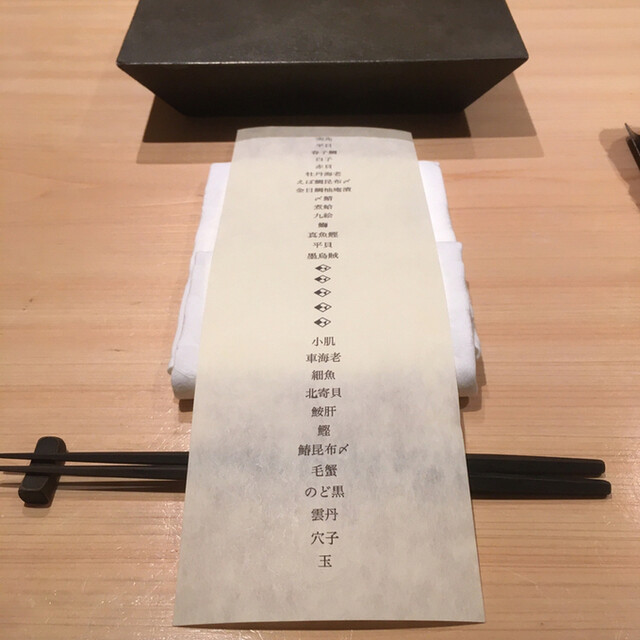 平目
春子鯛
白子
赤貝
牡丹海老
えぼ鯛昆布〆
金目鯛柚庵漬
〆鯖
煮蛤
九絵
鰤
真魚鰹
平貝
墨烏賊
小肌
車海老
細魚
北寄貝
鮟肝
鰹
鰆昆布〆
毛蟹
のど黒
雲丹
穴子
玉